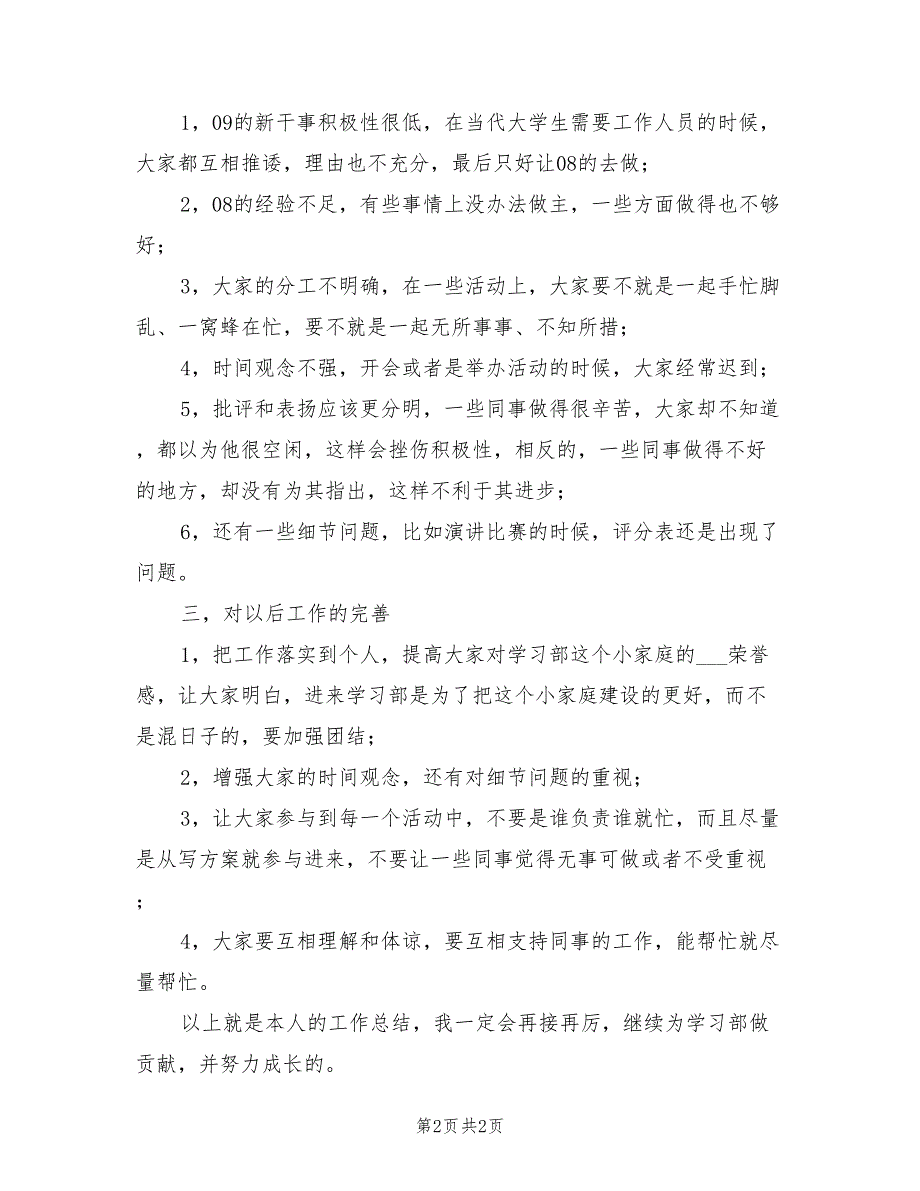 1，09的新干事积极性很低，在当代大学生需要工作人员的时候，
大家都互相推诿，理由也不充分，最后只好让08的去做；
2，08的经验不足，有些事情上没办法做主，一些方面做得也不够
好；
3，大家的分工不明确，在一些活动上，大家要不就是一起手忙脚
乱、一窝蜂在忙，要不就是一起无所事事、不知所措；
4，时间观念不强，开会或者是举办活动的时候，大家经常迟到；
5，批评和表扬应该更分明，一些同事做得很辛苦，大家却不知道
，都以为他很空闲，这样会挫伤积极性，相反的，一些同事做得不好
的地方，却没有为其指出，这样不利于其进步；
6，还有一些细节问题，比如演讲比赛的时候，评分表还是出现了
问题。
三，对以后工作的完善
1，把工作落实到个人，提高大家对学习部这个小家庭的___荣誉
感，让大家明白，进来学习部是为了把这个小家庭建设的更好，而不
是混日子的，要加强团结；
2，增强大家的时间观念，还有对细节问题的重视；
3，让大家参与到每一个活动中，不要是谁负责谁就忙，而且尽量
是从写方案就参与进来，不要让一些同事觉得无事可做或者不受重视
；
4，大家要互相理解和体谅，要互相支持同事的工作，能帮忙就尽
量帮忙。
以上就是本人的工作总结，我一定会再接再厉，继续为学习部做
贡献，并努力成长的。
第2页 共2页